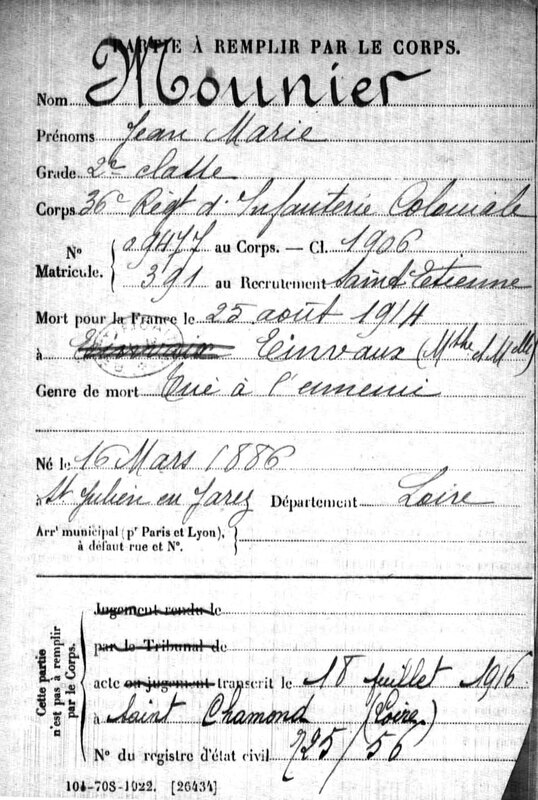 PARTIE À REMPLIR PAR LE CORPS.
Nom Mounier
Prénoms Jean Marie
Grade 2e classe
Corps 36e Régt d'Infanterie Coloniale
N° Matricule. 09477 au Corps. — Cl. 1906
391 au Recrutement Saint Etienne
Mort pour la France le 25 août 1914
à Einvaux (Mthe et Mlle)
Genre de mort Tué à l'ennemi
Né le 16 Mars 1886
à St Julien en Jarez Département Loire
Arrt municipal (pr Paris et Lyon),
à défaut rue et N°.
Cette partie
n'est pas à remplir
par le Corps.
Jugement rendu le
par le Tribunal de
acte ou jugement transcrit le 18 juillet 1916
à Saint Chamond (Loire)
N° du registre d'état civil 725/56
101-708-1922. [26434]